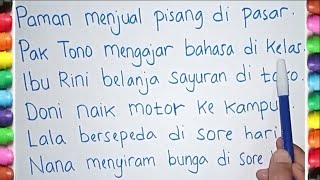 Paman menjual pisang di pasar.
Pak Tono mengajar bahasa di kelas.
Ibu Rini belanja sayuran di toko.
Doni naik motor ke
Lala bersepeda di sore hari
Nana menyiram bunga di sore